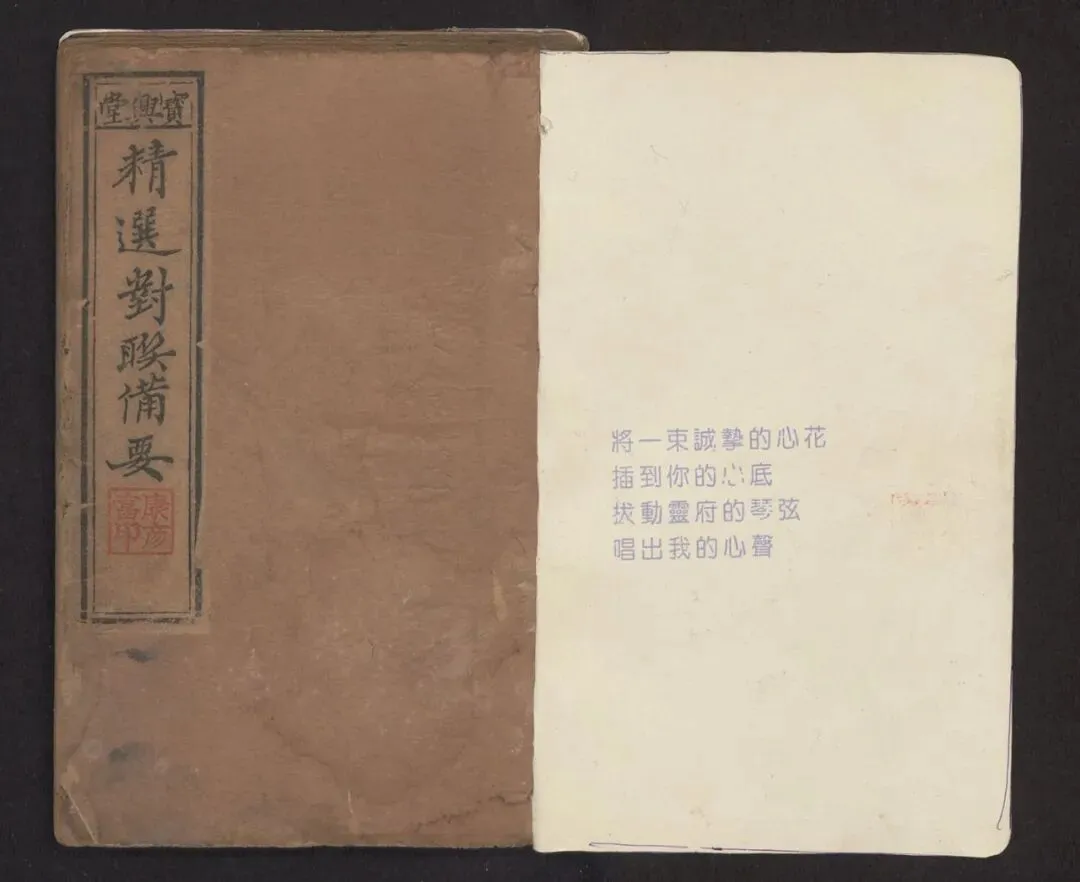 寶興堂
精選對聯備要
康彦富印
將一束誠摯的心花
插到你的心底
拔動靈府的琴弦
唱出我的心聲